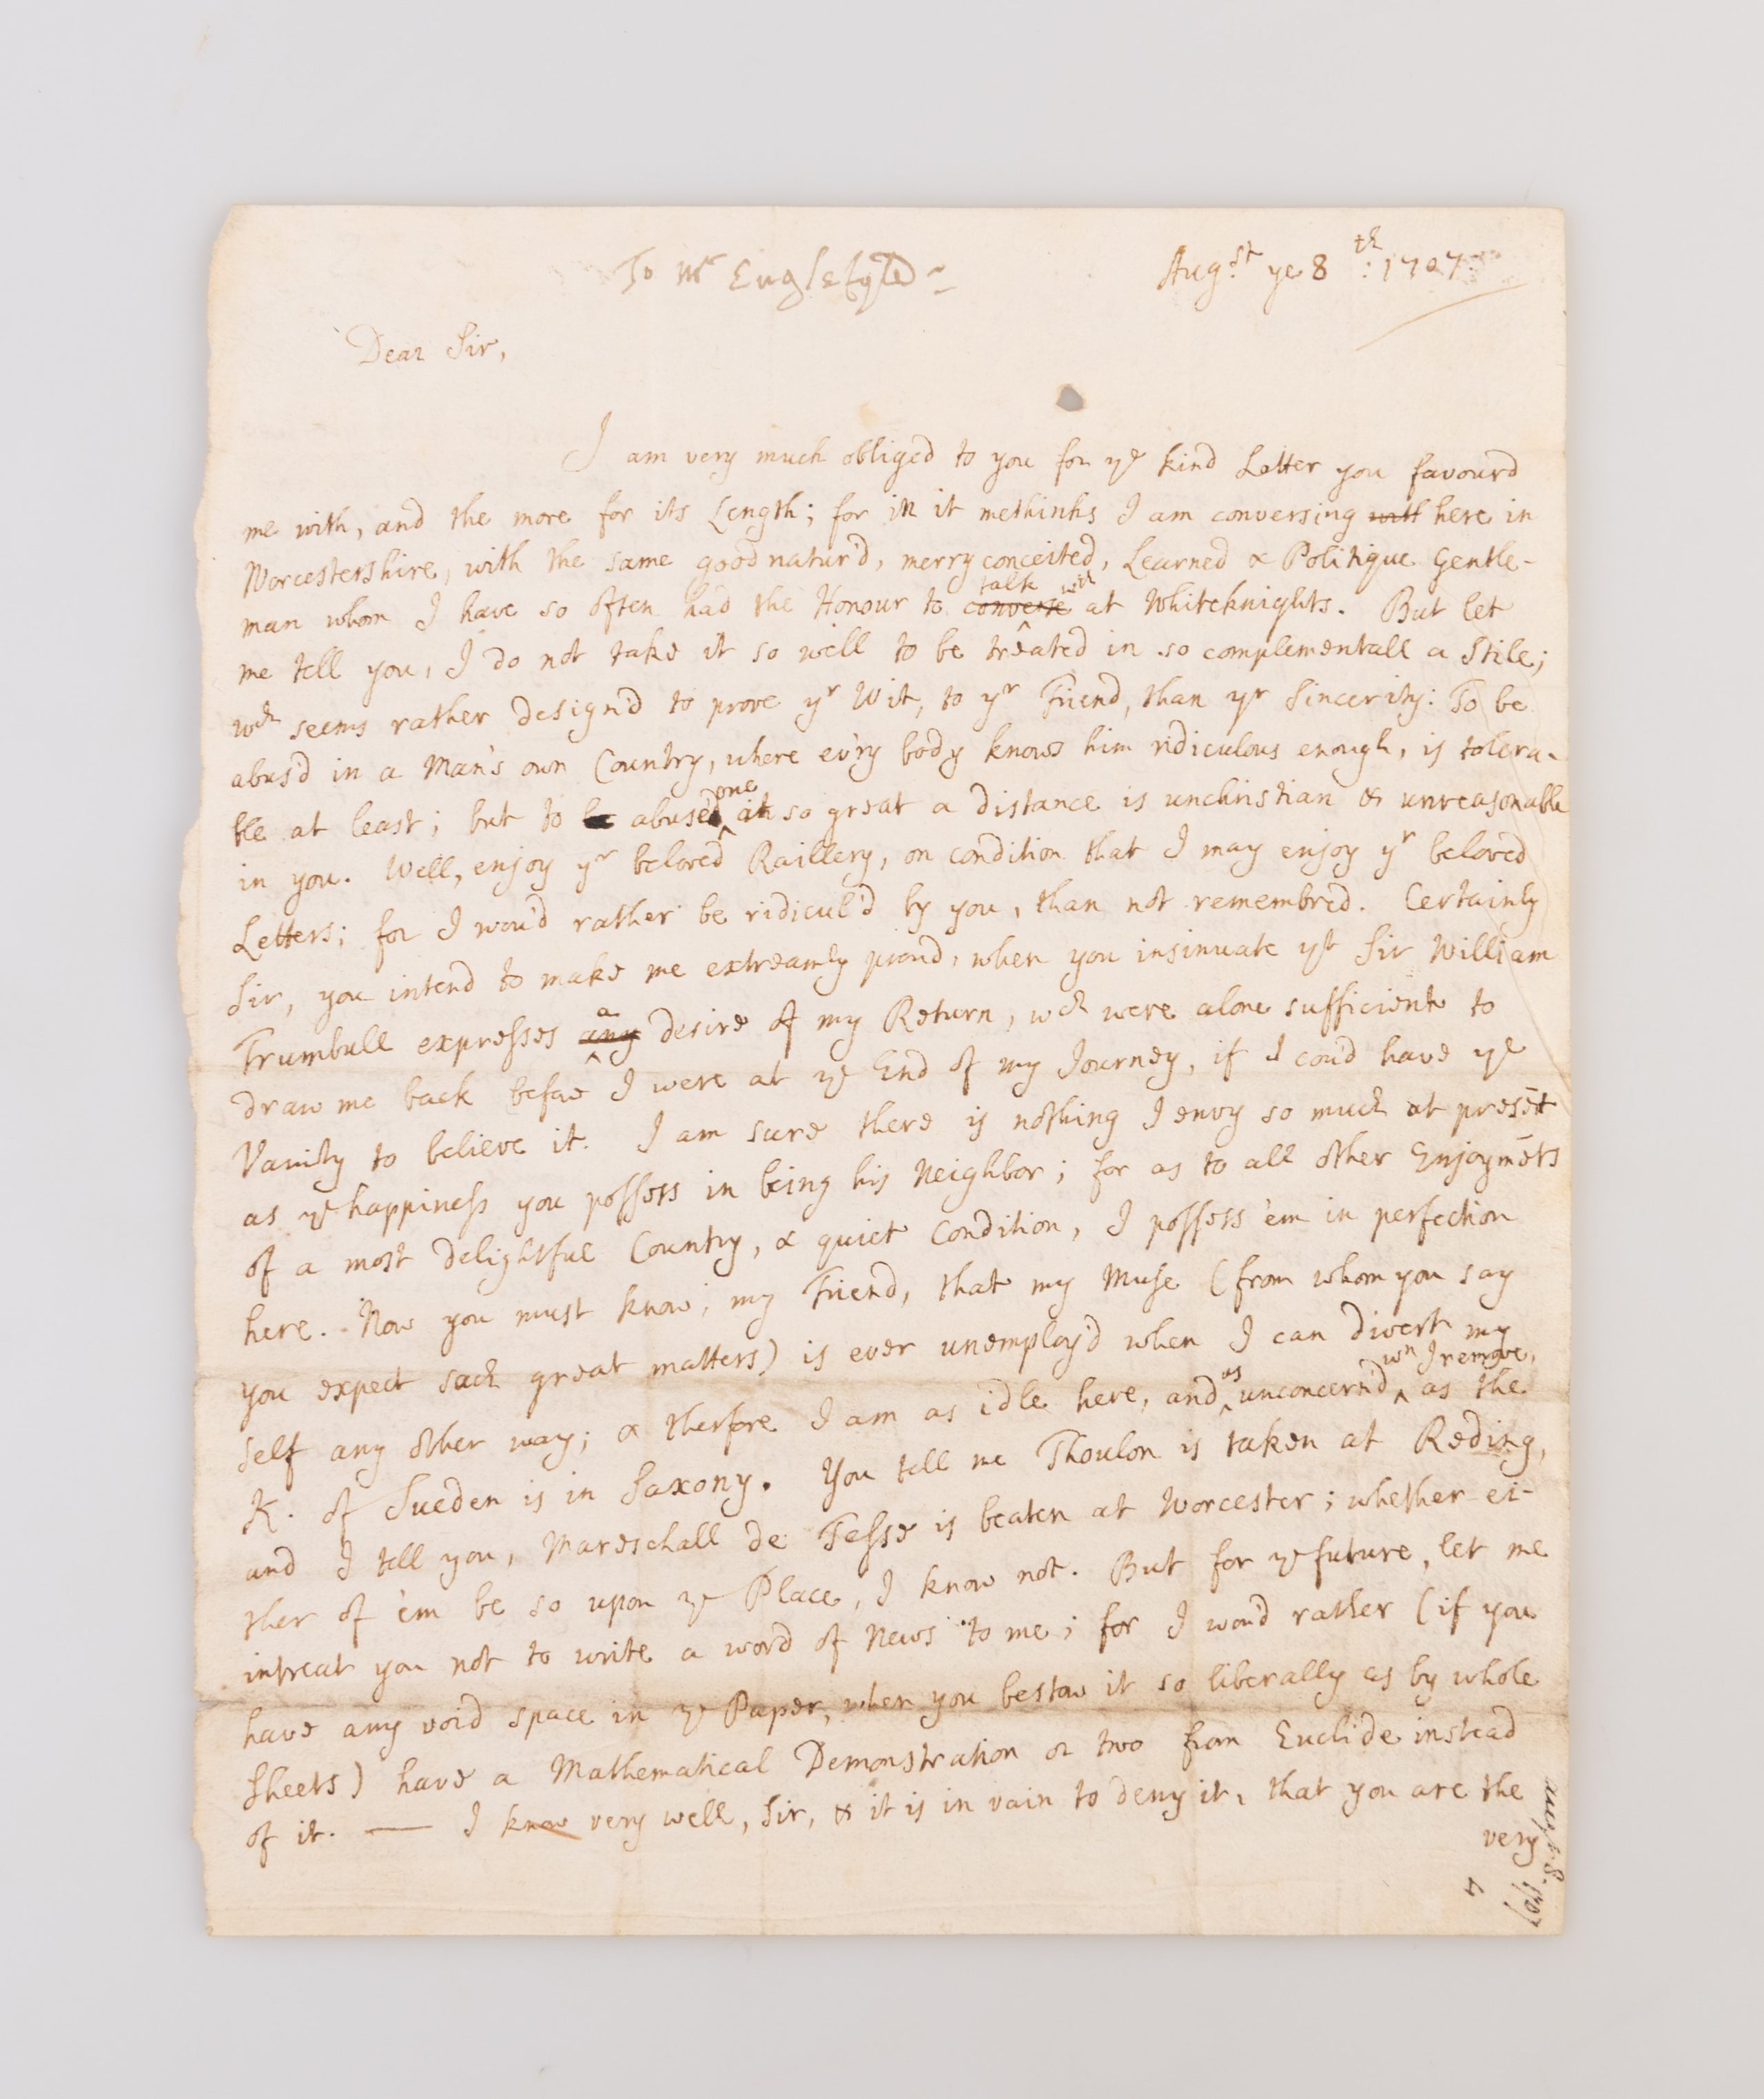 To Mr Englefyld
Augst. ye 8th: 1707
Dear Sir,
I am very much obliged to you for ye kind Letter you favourd
me with, and the more for its Length; for in it methinks I am conversing with here in
Worcestershire, with the same good natur'd, merry conceited, Learned & Politique Gentle-
talk with
man whom I have so often had the Honour to converse at Whiteknights. But let
me tell you, I do not take it so well to be treated in so complementall a Stile;
wch seems rather design'd to prove yr Wit, to yr Friend, than yr Sincerity: To be
abus'd in a Man's own Country, where ev'ry body knows him ridiculous enough, is tolera-
one
ble at least; but to be abuse at so great a distance is unchristian & unreasonable
in you. Well, enjoy yr beloved Raillery, on condition that I may enjoy yr beloved
Letters; for I wou'd rather be ridicul'd by you, than not remembred. Certainly
Sir, you intend to make me extreamly proud, when you insinuate yt Sir William
a
Trumbull expresses any desire of my Return, wch were alone sufficient to
draw me back before I were at ye End of my Journey, if I cou'd have ye
Vanity to believe it. I am sure there is nothing I envy so much at presēt
as ye happiness you possess in being his Neighbor; for as to all other Enjoymēts
of a most delightful Country, & quiet Condition, I possess 'em in perfection
here. Now you must know, my Friend, that my Muse (from whom you say
you expect such great matters) is ever unemploy'd when I can divert my
as wn I remove,
self any other way; & therfore I am as idle here, and unconcern'd as the
K. of Sueden is in Saxony. You tell me Thoulon is taken at Reding,
and I tell you, Mareschall de Tesse is beaten at Worcester; whether ei-
ther of 'em be so upon ye Place, I know not. But for ye future, let me
intreat you not to write a word of News to me; for I wou'd rather (if you
have any void space in ye Paper, when you bestow it so liberally as by whole
sheets) have a Mathematical Demonstration or two from Euclide instead
of it. — I know very well, Sir, & it is in vain to deny it, that you are the
very
1707